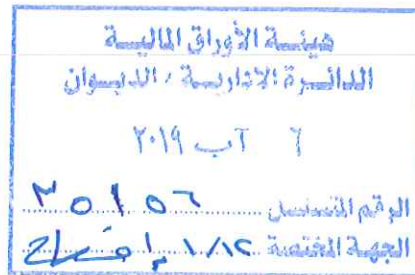 هيئة الأوراق المالية
الدائرة الادارية / الديوان
٦ آب ٢٠١٩
الرقم التسلسل ٣٥١٥٦
الجهة المختصة ١/١٢ إفصاح